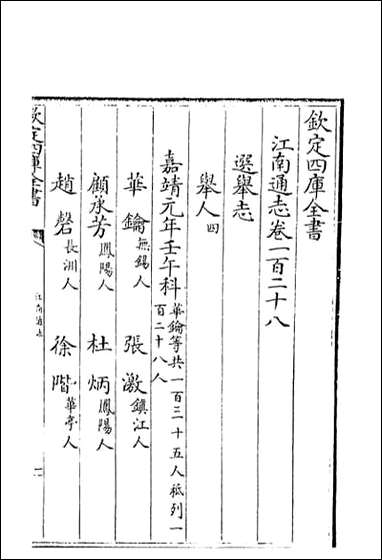 欽定四庫全書
江南通志卷一百二十八
選舉志
舉人四
嘉靖元年壬午科華鑰等共一百二十五人祗列一百二十八人
華鑰無錫人 張激鎮江人
顧承芳鳳陽人 杜炳鳳陽人
趙磬長洲人 徐階華亭人
欽定四庫全書
江南通志